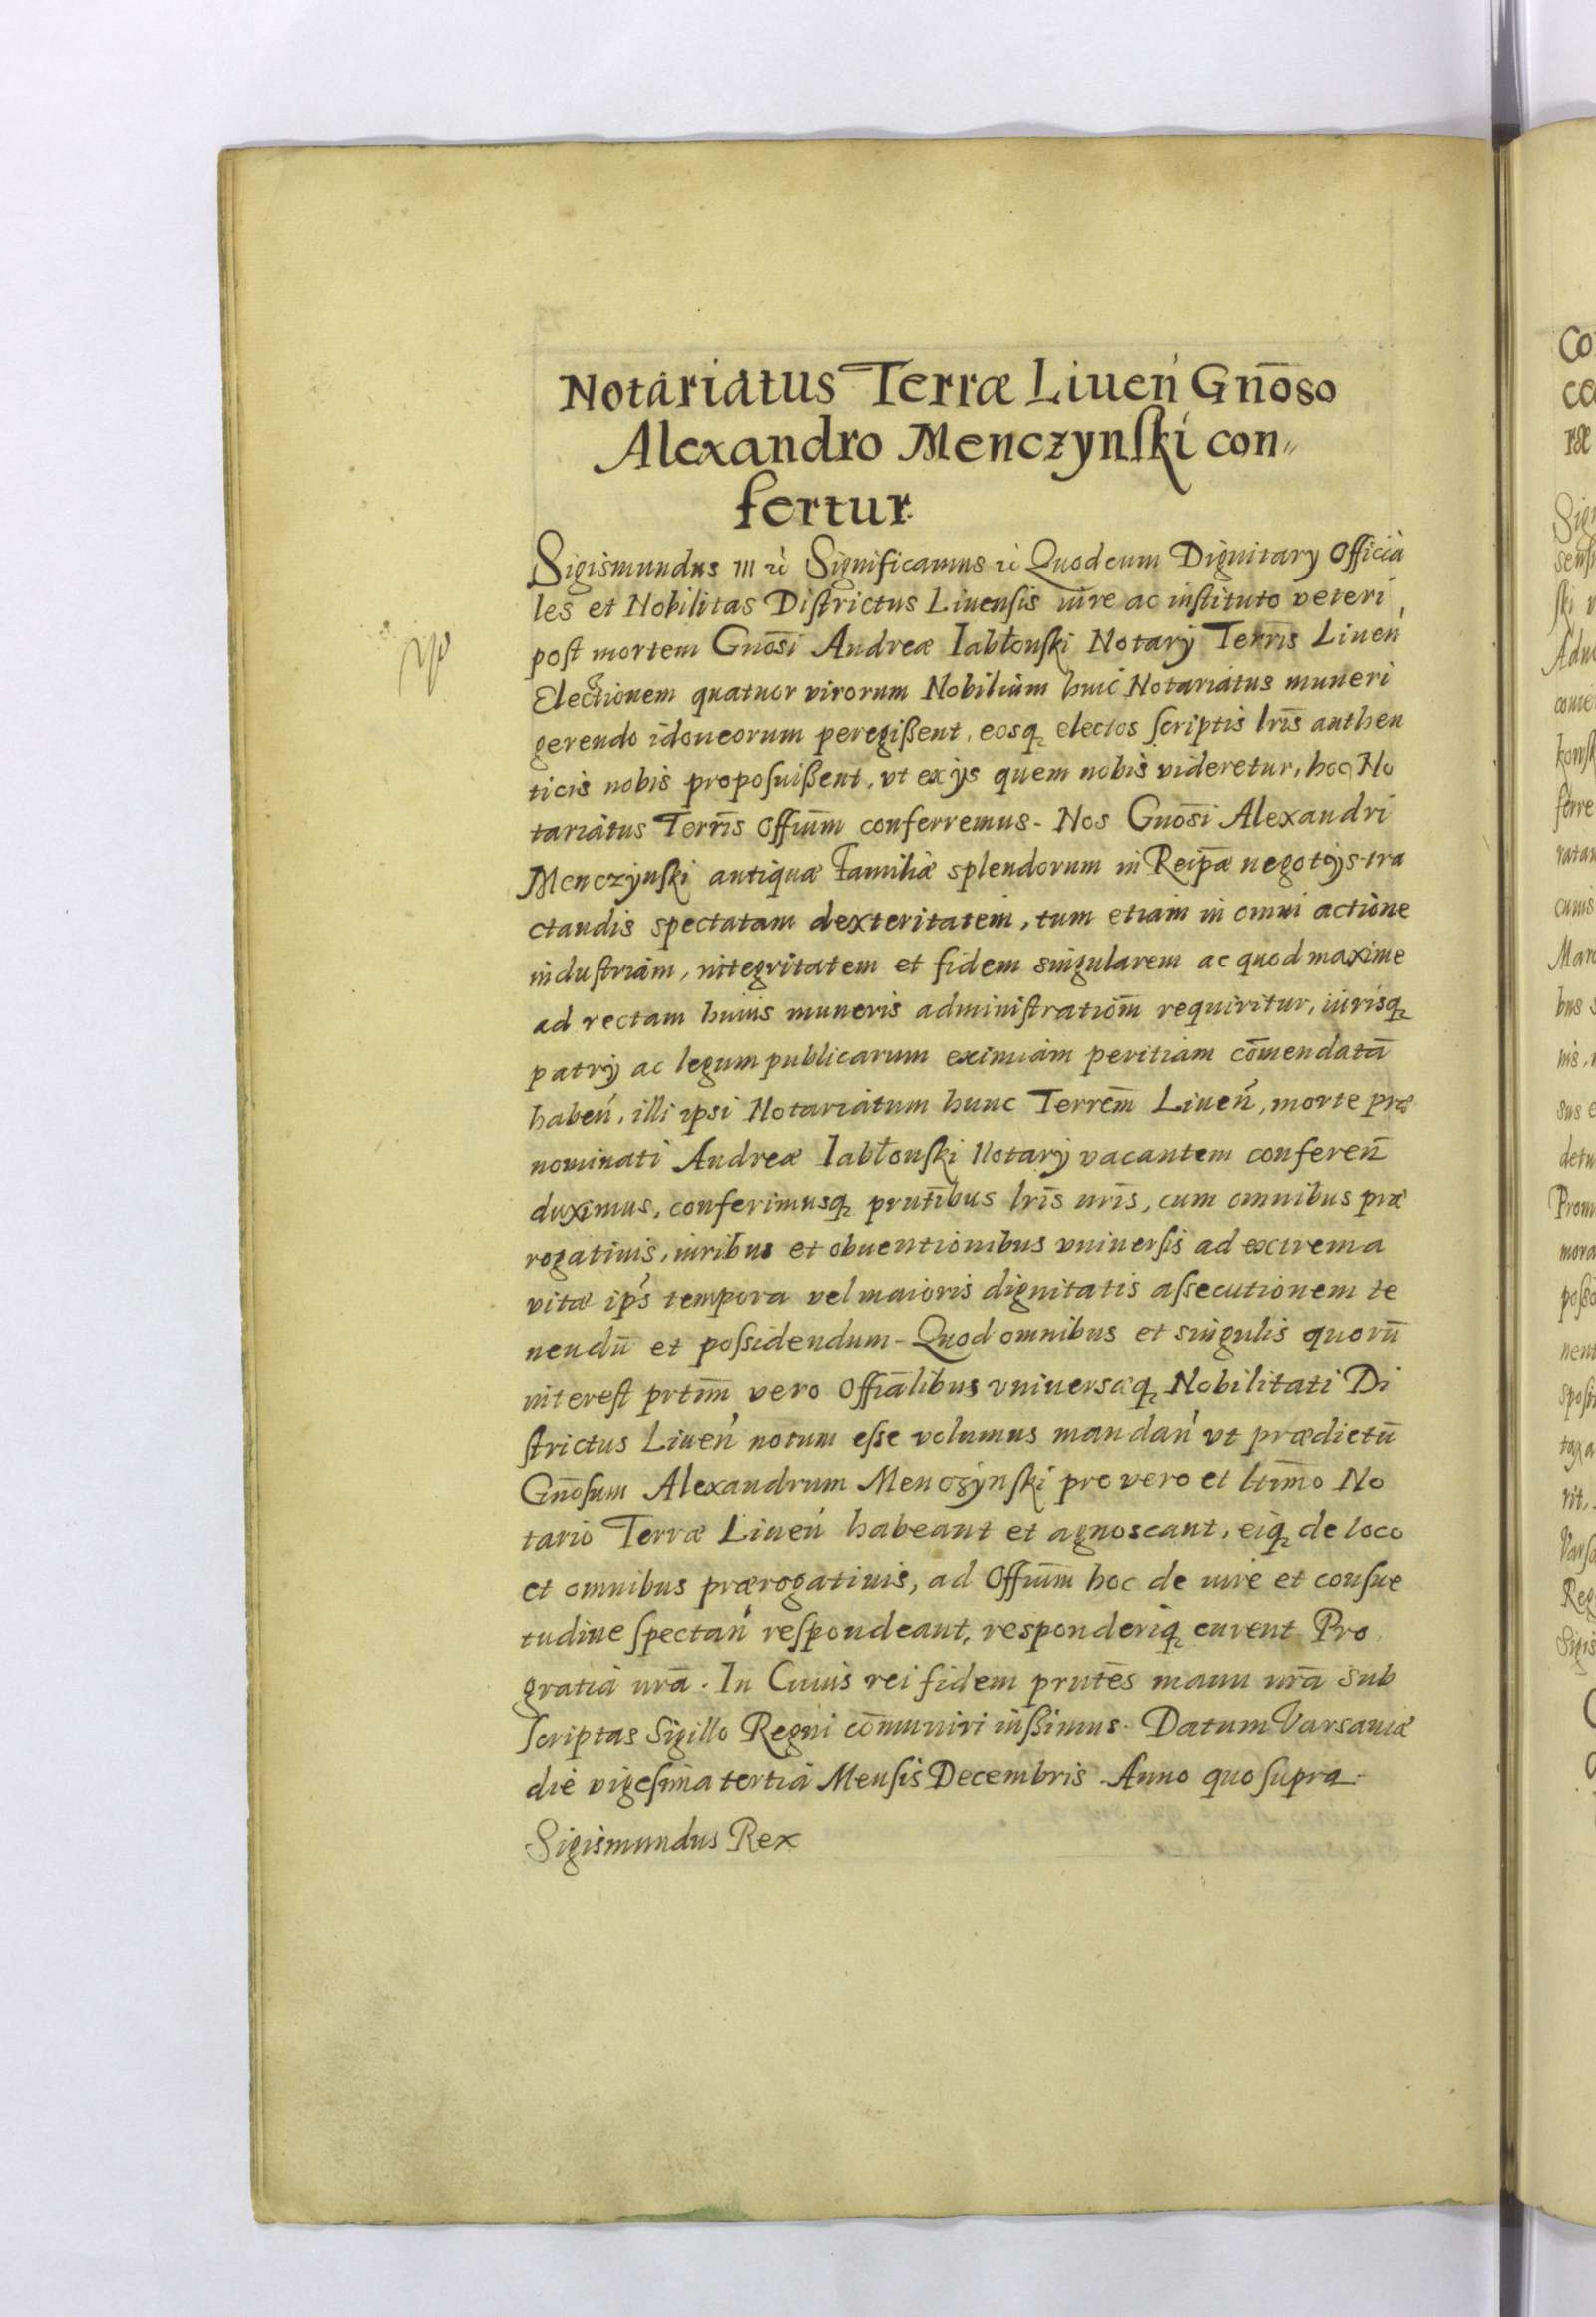 Notariatus Terræ Liuen̍ Gn̄oso
Alexandro Menczynſki con„
fertur.
Sigismundus III ꝛc̀ Significamus ꝛc̀ Quod cum Dignitary Officia
les et Nobilitas Diſtrictus Liuenſis iure ac inſtituto veteri
poſt mortem Gnōsi Andreæ Iabłonſki Notarÿ Terrīs Liuen̍
Electionem quatuor virorum Nobilium huic Notariatus muneri
gerendo idoneorum peregißent, eosq; electos ſcriptis lrīs authen
ticis nobis propoſuißent, vt ex ijs quem nobis videretur, hoc No
tariatus Terrīs Offiūm conferremus. Nos Gnōsi Alexandri
Menczÿnſki antiquæ Familiæ splendorum in Reipǣ negotÿs tra
ctandis spectatam dexteritatem, tum etiam in omni actione
induſtriam, integritatem et fidem singularem ac quod maxime
ad rectam huius muneris adminiſtratiōm requiritur, iurisq;
patrÿ ac legum publicarum eximiam peritiam cōmendatā
haben̍, illi ipsi Notariatum hunc Terrēm Liuen̍, morte præ
nominati Andreæ Iabłonſki Notarÿ vacantem conferen̄
duximus, conferimusq; prntībus lrīs nrīs, cum omnibus præ
rogatiuis, iuribus et obuentionibus vniuerſis ad extrema
vitæ ip̍s tempora vel maioris dignitatis aſſecutionem te
nendū et poſſidendum. Quod omnibus et singulis quorū
intereſt prtīm vero Offiālibus vniuersæq; Nobilitati Di
ſtrictus Liuen̍ notum eſſe volumus mandan̍ vt prædictū
Gn̄oſum Alexandrum Menczÿnſki pro vero et ltīmo No
tario Terræ Liuen̍ habeant et agnoscant, eiq; de loco
et omnibus prærogatiuis, ad Offiūm hoc de iure et conſue
tudine ſpectan̍ reſpondeant, responderiq; curent Pro
gratia nrā. In Cuius rei fidem prntēs manu nrā Sub
ſcriptas Sigillo Regni cōmuniri iuſſimus. Datum Varsauiæ
die vigeſima tertia Menſis Decembris Anno quo ſupra.
Sigismundus Rex